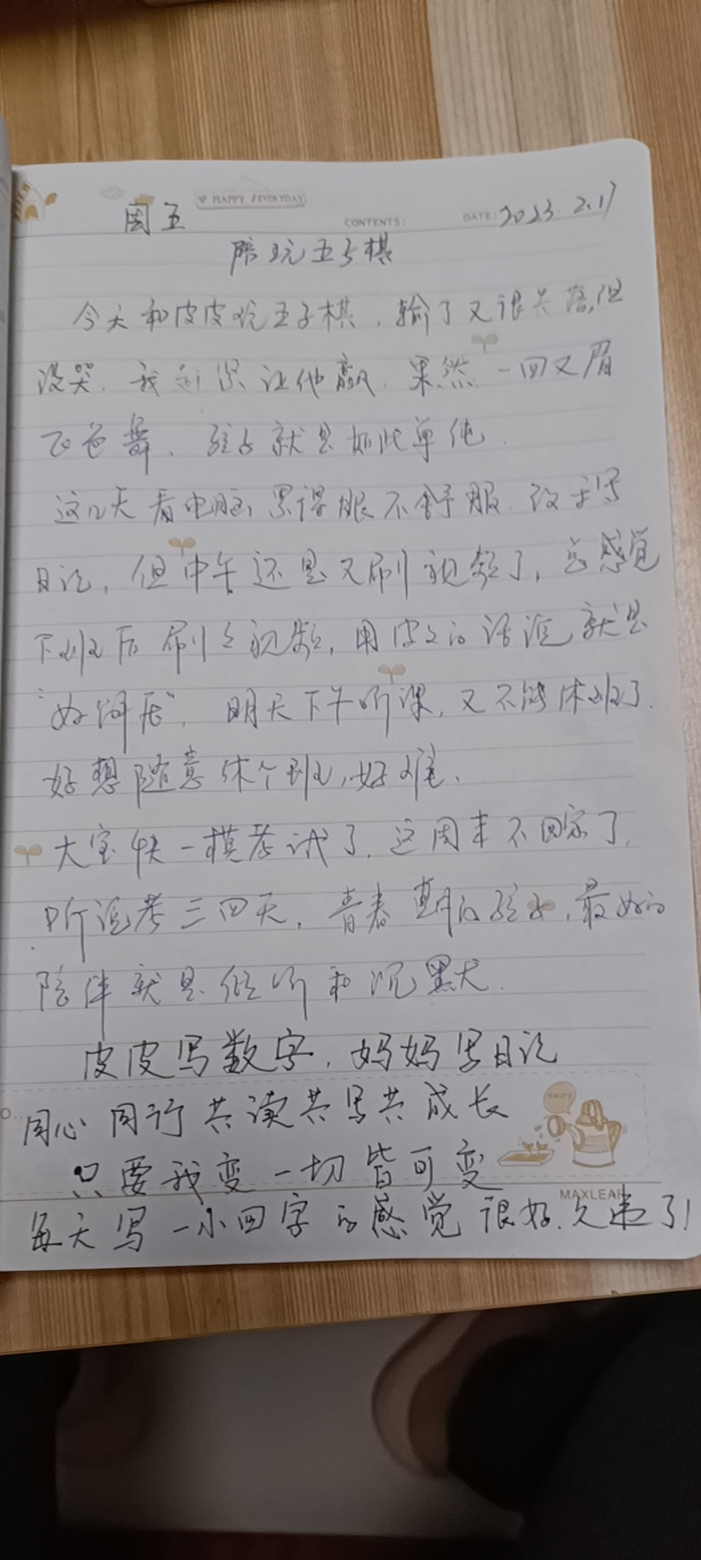 HAPPY EVERYDAY
周五 CONTENTS: DATE: 2023.2.17
陪玩五子棋
今天和皮皮玩五子棋,输了又很失落,但
没哭.我赶紧让他赢.果然一回又眉
飞色舞.孩子就是如此单纯.
这几天看电脑累得眼不舒服.改手写
日记,但中午还是又刷视频了,总感觉
下班后刷刷视频,用皮皮的话说就是
明天下午听课,又不能休班了.
好想随意休个班,好难.
大宝快一模考试了.这周末不回家了.
听说考三四天,青春期的孩子,最好的
陪伴就是倾听和沉默.
皮皮写数字,妈妈写日记
同心同行共读共写共成长
只要我变一切皆可变
MAXLEAF
每天写一小田字的感觉很好.久违了!